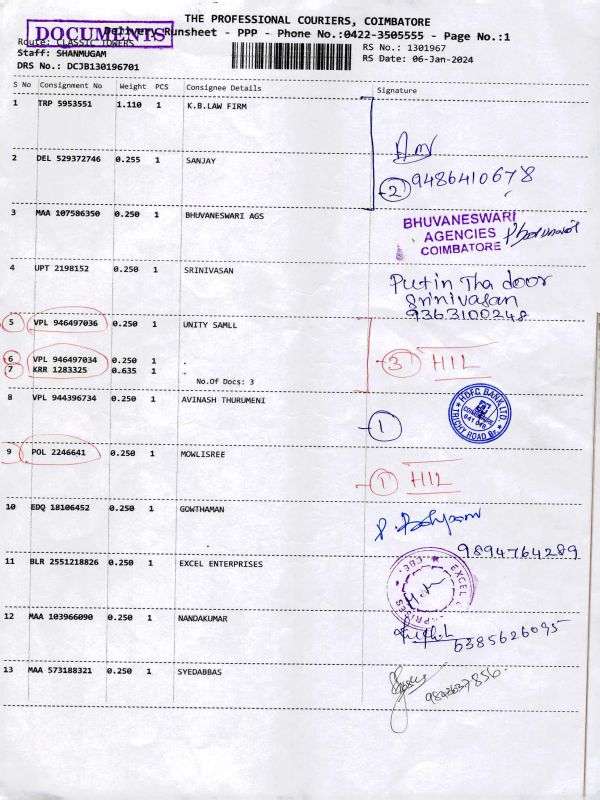 THE PROFESSIONAL COURIERS, COIMBATORE
DOCUMENTS
Delivery Runsheet - PPP - Phone No.:0422-3505555 - Page No.:1
Route: CLASSIC TOWERS
RS No.: 1301967
Staff: SHANMUGAM
RS Date: 06-Jan-2024
DRS No.: DCJB130196701
S No Consignment No Weight PCS Consignee Details Signature
1 TRP 5953551 1.110 1 K.B.LAW FIRM
2 DEL 529372746 0.255 1 SANJAY
2 9486410678
3 MAA 107586350 0.250 1 BHUVANESWARI AGS
BHUVANESWARI
AGENCIES
COIMBATORE
4 UPT 2198152 0.250 1 SRINIVASAN
Put in Tha door
Srinivasan
9363100248
5 VPL 946497036 0.250 1 UNITY SAMLL
6 VPL 946497034 0.250 1
3 HIL
7 KRR 1283325 0.635 1
No.Of Docs: 3
8 VPL 944396734 0.250 1 AVINASH THURUMENI
1
HDFC BANK LTD
TRICHY ROAD Br.
9 POL 2246641 0.250 1 MOWLISREE
1 HIL
10 EDQ 18106452 0.250 1 GOWTHAMAN
9894764289
11 BLR 2551218826 0.250 1 EXCEL ENTERPRISES
12 MAA 103966090 0.250 1 NANDAKUMAR
6385626095
13 MAA 573188321 0.250 1 SYEDABBAS